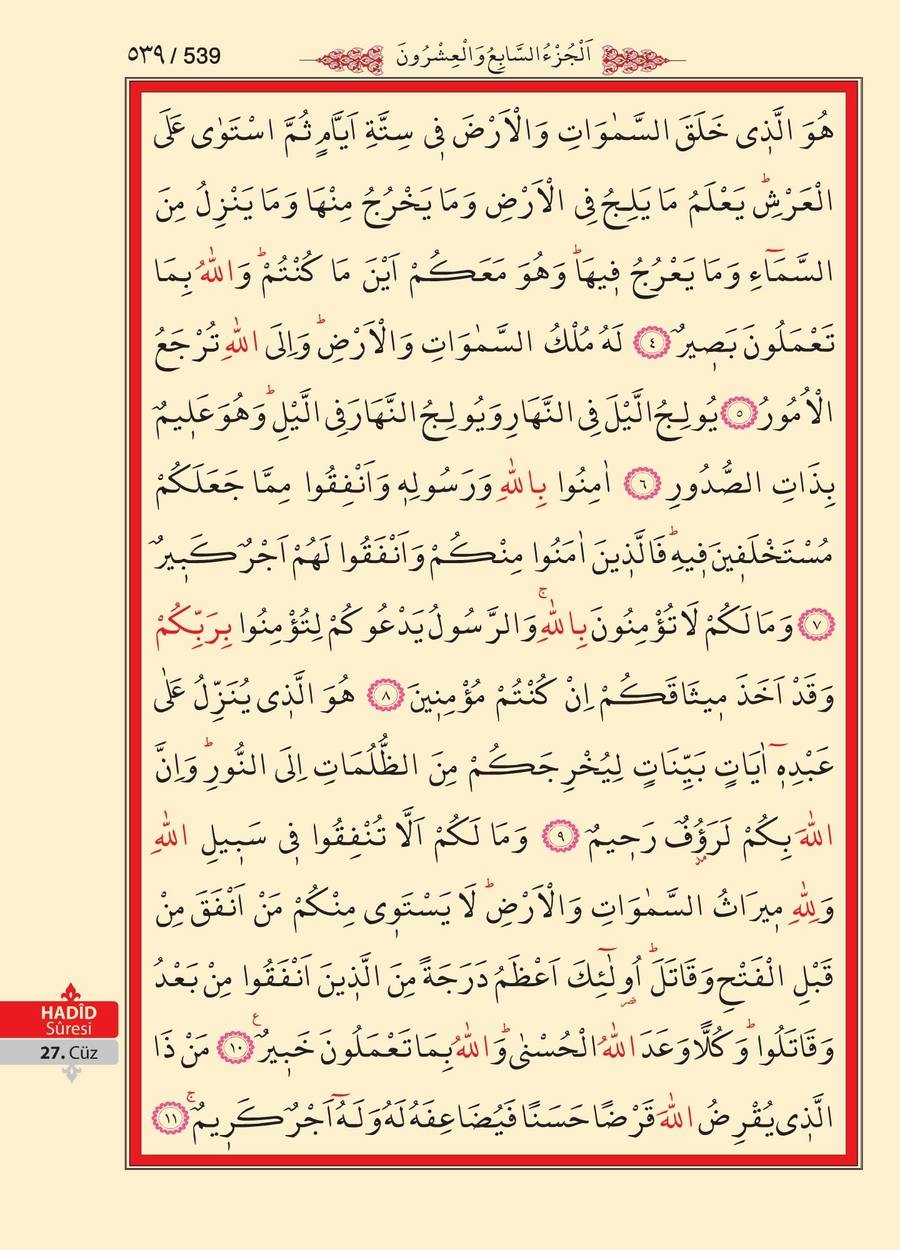 ٥٣٩ / 539
اَلْجُزْءُ السَّابِعُ وَالْعِشْرُونَ
هُوَ الَّذ۪ي خَلَقَ السَّمٰوَاتِ وَالْاَرْضَ ف۪ي سِتَّةِ اَيَّامٍ ثُمَّ اسْتَوٰى عَلَى
الْعَرْشِۜ يَعْلَمُ مَا يَلِجُ فِي الْاَرْضِ وَمَا يَخْرُجُ مِنْهَا وَمَا يَنْزِلُ مِنَ
السَّمَٓاءِ وَمَا يَعْرُجُ ف۪يهَاۜ وَهُوَ مَعَكُمْ اَيْنَ مَا كُنْتُمْۜ وَاللّٰهُ بِمَا
تَعْمَلُونَ بَص۪يرٌ ﴿٤﴾ لَهُ مُلْكُ السَّمٰوَاتِ وَالْاَرْضِۜ وَاِلَى اللّٰهِ تُرْجَعُ
الْاُمُورُ ﴿٥﴾ يُولِجُ الَّيْلَ فِي النَّهَارِ وَيُولِجُ النَّهَارَ فِي الَّيْلِۜ وَهُوَ عَل۪يمٌ
بِذَاتِ الصُّدُورِ ﴿٦﴾ اٰمِنُوا بِاللّٰهِ وَرَسُولِه۪ وَاَنْفِقُوا مِمَّا جَعَلَكُمْ
مُسْتَخْلَف۪ينَ ف۪يهِۜ فَالَّذ۪ينَ اٰمَنُوا مِنْكُمْ وَاَنْفَقُوا لَهُمْ اَجْرٌ كَب۪يرٌ
﴿٧﴾ وَمَا لَكُمْ لَا تُؤْمِنُونَ بِاللّٰهِۚ وَالرَّسُولُ يَدْعُوكُمْ لِتُؤْمِنُوا بِرَبِّكُمْ
وَقَدْ اَخَذَ م۪يثَاقَكُمْ اِنْ كُنْتُمْ مُؤْمِن۪ينَ ﴿٨﴾ هُوَ الَّذ۪ي يُنَزِّلُ عَلٰى
عَبْدِه۪ٓ اٰيَاتٍ بَيِّنَاتٍ لِيُخْرِجَكُمْ مِنَ الظُّلُمَاتِ اِلَى النُّورِۜ وَاِنَّ
اللّٰهَ بِكُمْ لَرَؤُ۫فٌ رَح۪يمٌ ﴿٩﴾ وَمَا لَكُمْ اَلَّا تُنْفِقُوا ف۪ي سَب۪يلِ اللّٰهِ
وَلِلّٰهِ م۪يرَاثُ السَّمٰوَاتِ وَالْاَرْضِۜ لَا يَسْتَو۪ي مِنْكُمْ مَنْ اَنْفَقَ مِنْ
قَبْلِ الْفَتْحِ وَقَاتَلَۜ اُو۬لٰٓئِكَ اَعْظَمُ دَرَجَةً مِنَ الَّذ۪ينَ اَنْفَقُوا مِنْ بَعْدُ
وَقَاتَلُواۜ وَكُلًّا وَعَدَ اللّٰهُ الْحُسْنٰىۜ وَاللّٰهُ بِمَا تَعْمَلُونَ خَب۪يرٌ ﴿١٠﴾ مَنْ ذَا
الَّذ۪ي يُقْرِضُ اللّٰهَ قَرْضًا حَسَنًا فَيُضَاعِفَهُ لَهُ وَلَهُٓ اَجْرٌ كَر۪يمٌۚ ﴿١١﴾
HADÎD
Sûresi
27. Cüz